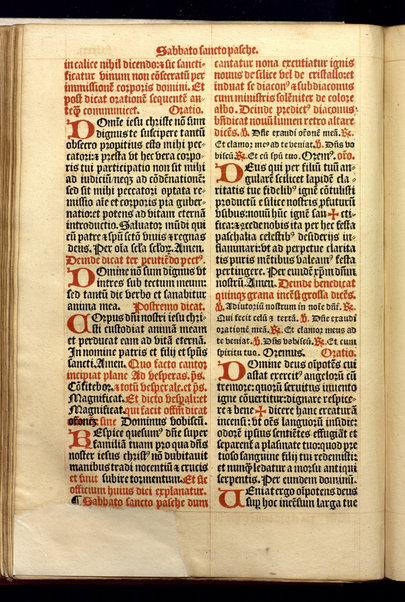 Sabbato sancto pasche.
in calice nihil dicendo: ⁊ sic sancti-
ficatur vinum non cōsecratū per
immissionē corporis domini. Et
post dicat orationē sequentē an-
teq̄ communicet. Oratio.
Domine iesu christe nō sum
dignus te suscipere tantū
obsecro propitius esto mihi pec-
catori: ⁊ presta vt hec vera corpo-
ris tui participatio non sit mihi
ad iudiciū neqꝫ ad cōdēnationē:
sed sit mihi peccatori optata re-
missio aīe et corporis pia guber-
natio: et potens ad vitam eternā
introductio. Saluator mūdi qui
cū patre ⁊ spū sctō viuis ⁊ regnas
deus. Per oīa secła scłor. Amen.
Deinde dicat ter peutiēdo pectꝰ.
Domine nō sum dignus vt
intres sub tectum meum:
sed tantū dic verbo et sanabitur
anima mea. Postremo dicat.
Corpus dn̄i nostri iesu chri-
sti custodiat animā meam
et perducat eam ad vitā eternā.
In nomine patris et filij et spūs
sancti. Amen. Quo facto cantor
incipiat plane Ad vesperas. p̄s.
Cōfitebor. ⁊ totū vesperale. et p̄s.
Magnificat. Et dicto vespali: et
Magnificat. qui facit offm̄ dicat
orōnez sine Dominus vobiscū.
Respice quesum⁹ dn̄e super
familiā tuam pro qua dn̄s
noster iesus christ⁹ nō dubitauit
manibus tradi nocentiū ⁊ crucis
et finit subire tormentum. Et sic
officium huius diei explanatur.
¶ Sabbato sancto pasche dum
cantatur nona excutiatur ignis
nouus de silice vel de cristallo: et
induat se diacon⁹ ⁊ subdiaconus
cum ministris solēniter de colore
albo. Deinde predict⁹ diaconus
bn̄dicat nouū lumen retro altare
dicēs. ℣. Dn̄e exaudi orōnē meā. ℟.
Et clamor me⁹ ad te veniat. ℣. Dn̄s vo-
biscū. ℟. Et cū spū tuo. Orem⁹. orō.
Deus qui per filiū tuū an-
gularē scilicet lapidē cla-
ritatis tue fidelib⁹ ignē cōtulisti
productū e silice nostris ꝓfuturū
vsibus: nouū hūc ignē san ✠ cti-
fica: ⁊ ↄcede nobis ita per hec festa
paschalia celestib⁹ desiderijs in-
flammari: vt ad perpetue clarita
tis puris mētibus valeam⁹ festa
pertingere. Per eundē xp̄m dn̄m
nostrū. Amen. Deinde benedicat
quinqꝫ grana incēsi grossa dicēs.
℣. Adiutoriū nostrum in noīe dn̄i. ℟.
Qui fecit celū ⁊ terrā. ℣. Dn̄e exaudi
orationē meā. ℟. Et clamor meus ad
te veniat. ℣. Dn̄s vobiscū. ℟. Et cum
spiritu tuo. Oremus. Oratio.
Domine deus oīpotēs cui
assistit exercit⁹ angelorū cū
tremore: quorū seruitus in vento
igne cōuertitur: dignare respice-
re ⁊ bene ✠ dicere hanc creaturā
incensi: vt oēs languorū insidie
odorē ipsius sentētes effugiāt et
separent a plasmate tuo: quod pre
tioso sanguine filij tui redemisti:
et nunq̄ ledatur a morsu antiqui
serpentis. Per eundem dominū.
Veniat ergo oīpotens deus
sup̄ hoc incēsum larga tue